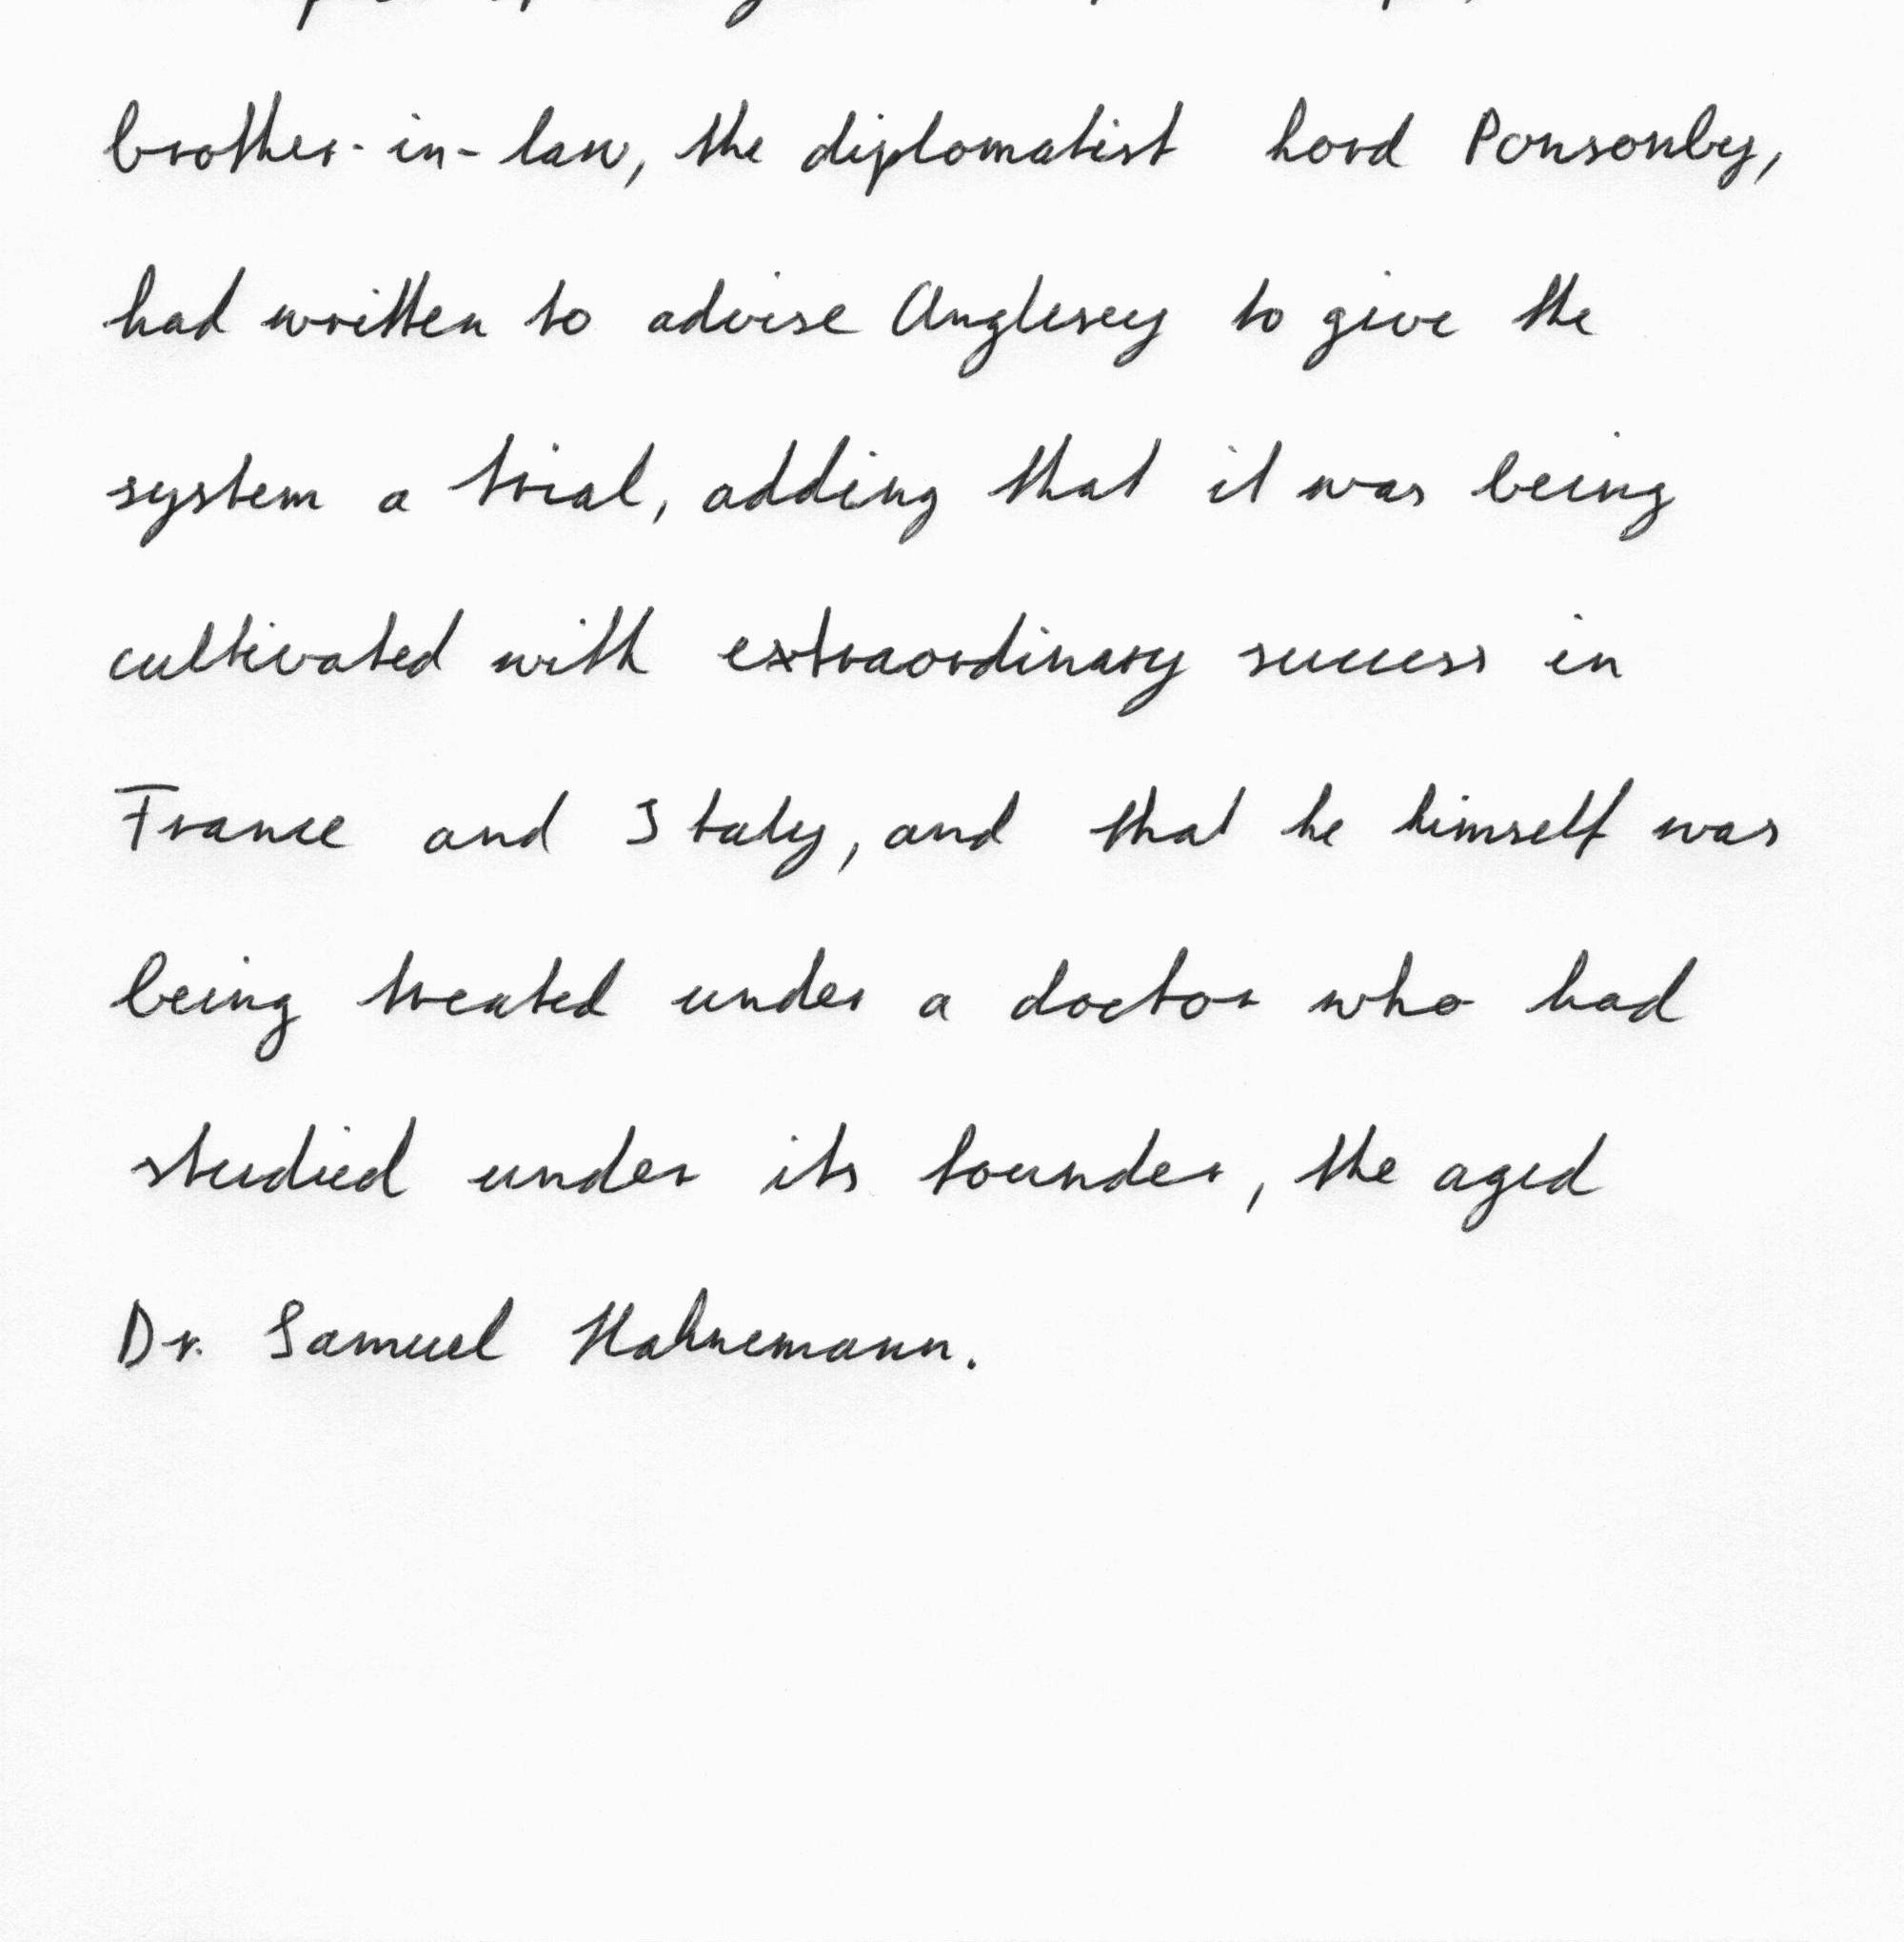 brother-in-law, the diplomatist Lord Ponsonby,
had written to advise Anglesey to give the
system a trial, adding that it was being
cultivated with extraordinary success in
France and Italy, and that he himself was
being treated under a doctor who had
studied under its founder, the aged
Dr. Samuel Hahnemann.